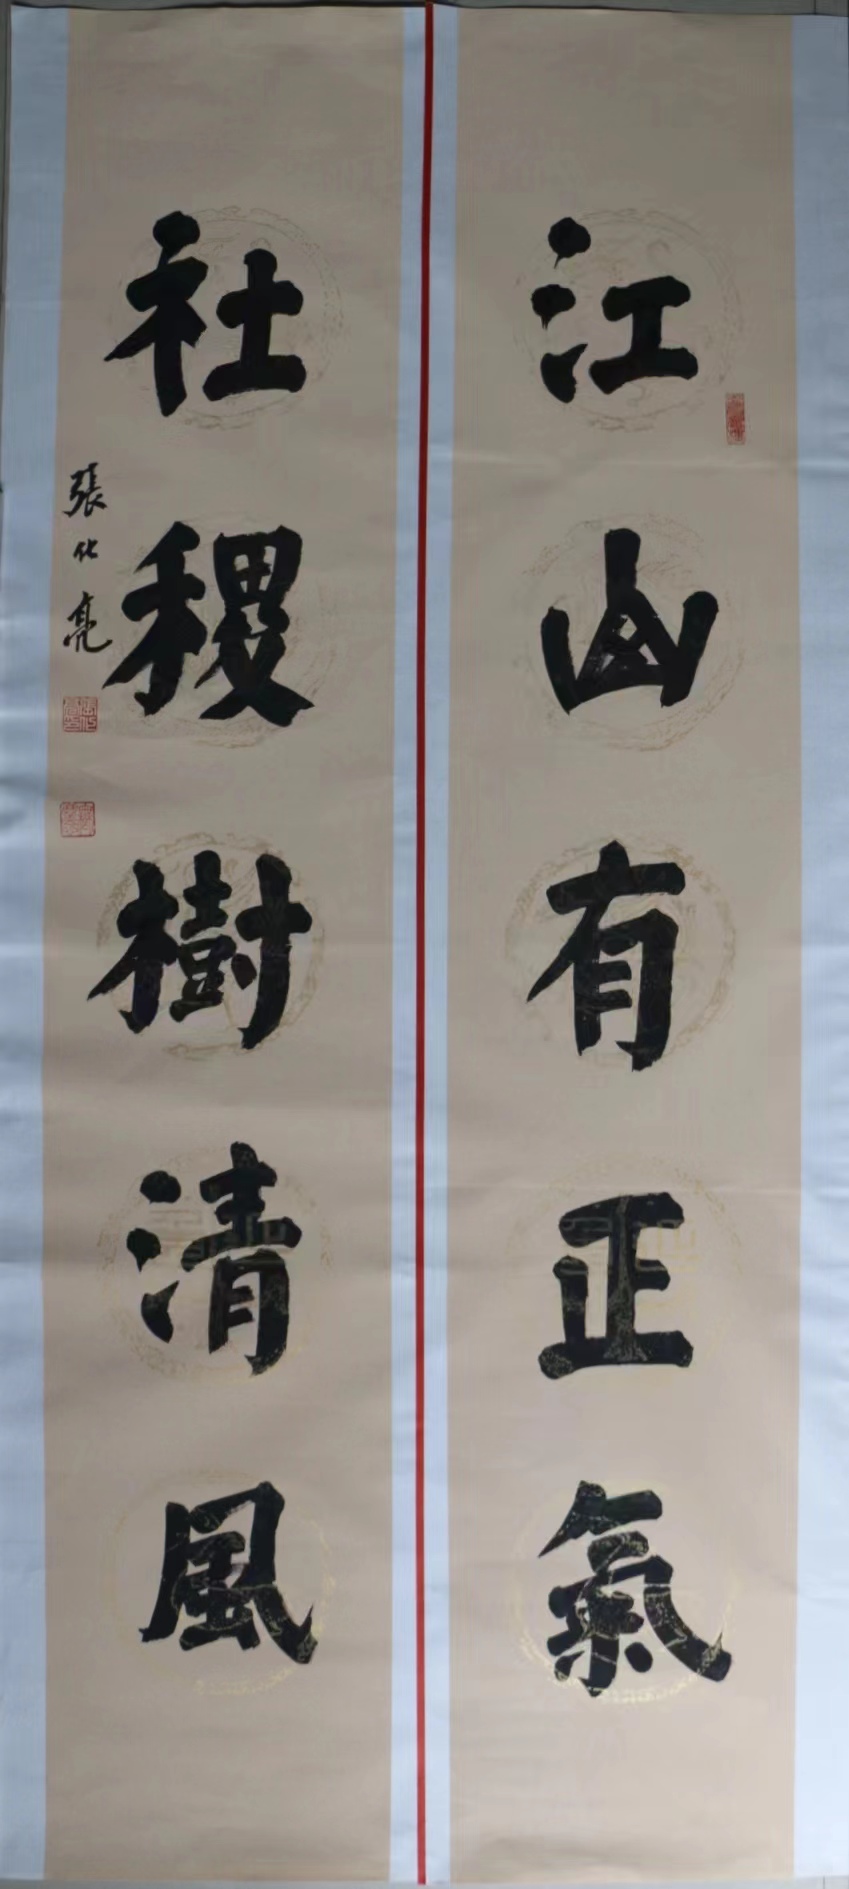 江山有正氣
社稷樹清風
張化亮